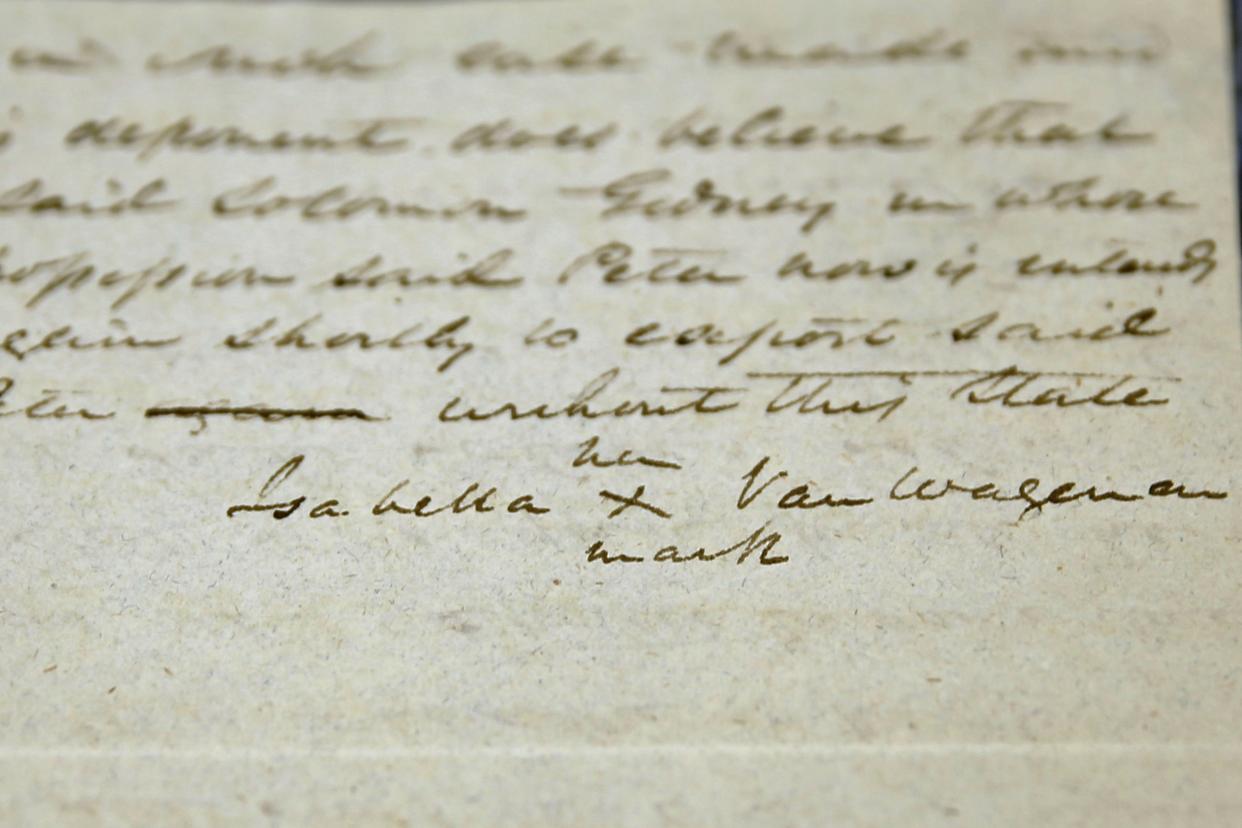 in such case made and
s deponent does believe that
said Solomon Gedney in whose
possession said Peter now is intends
again shortly to export said
eter without this State
her
Isabella X Van Wagenan
mark